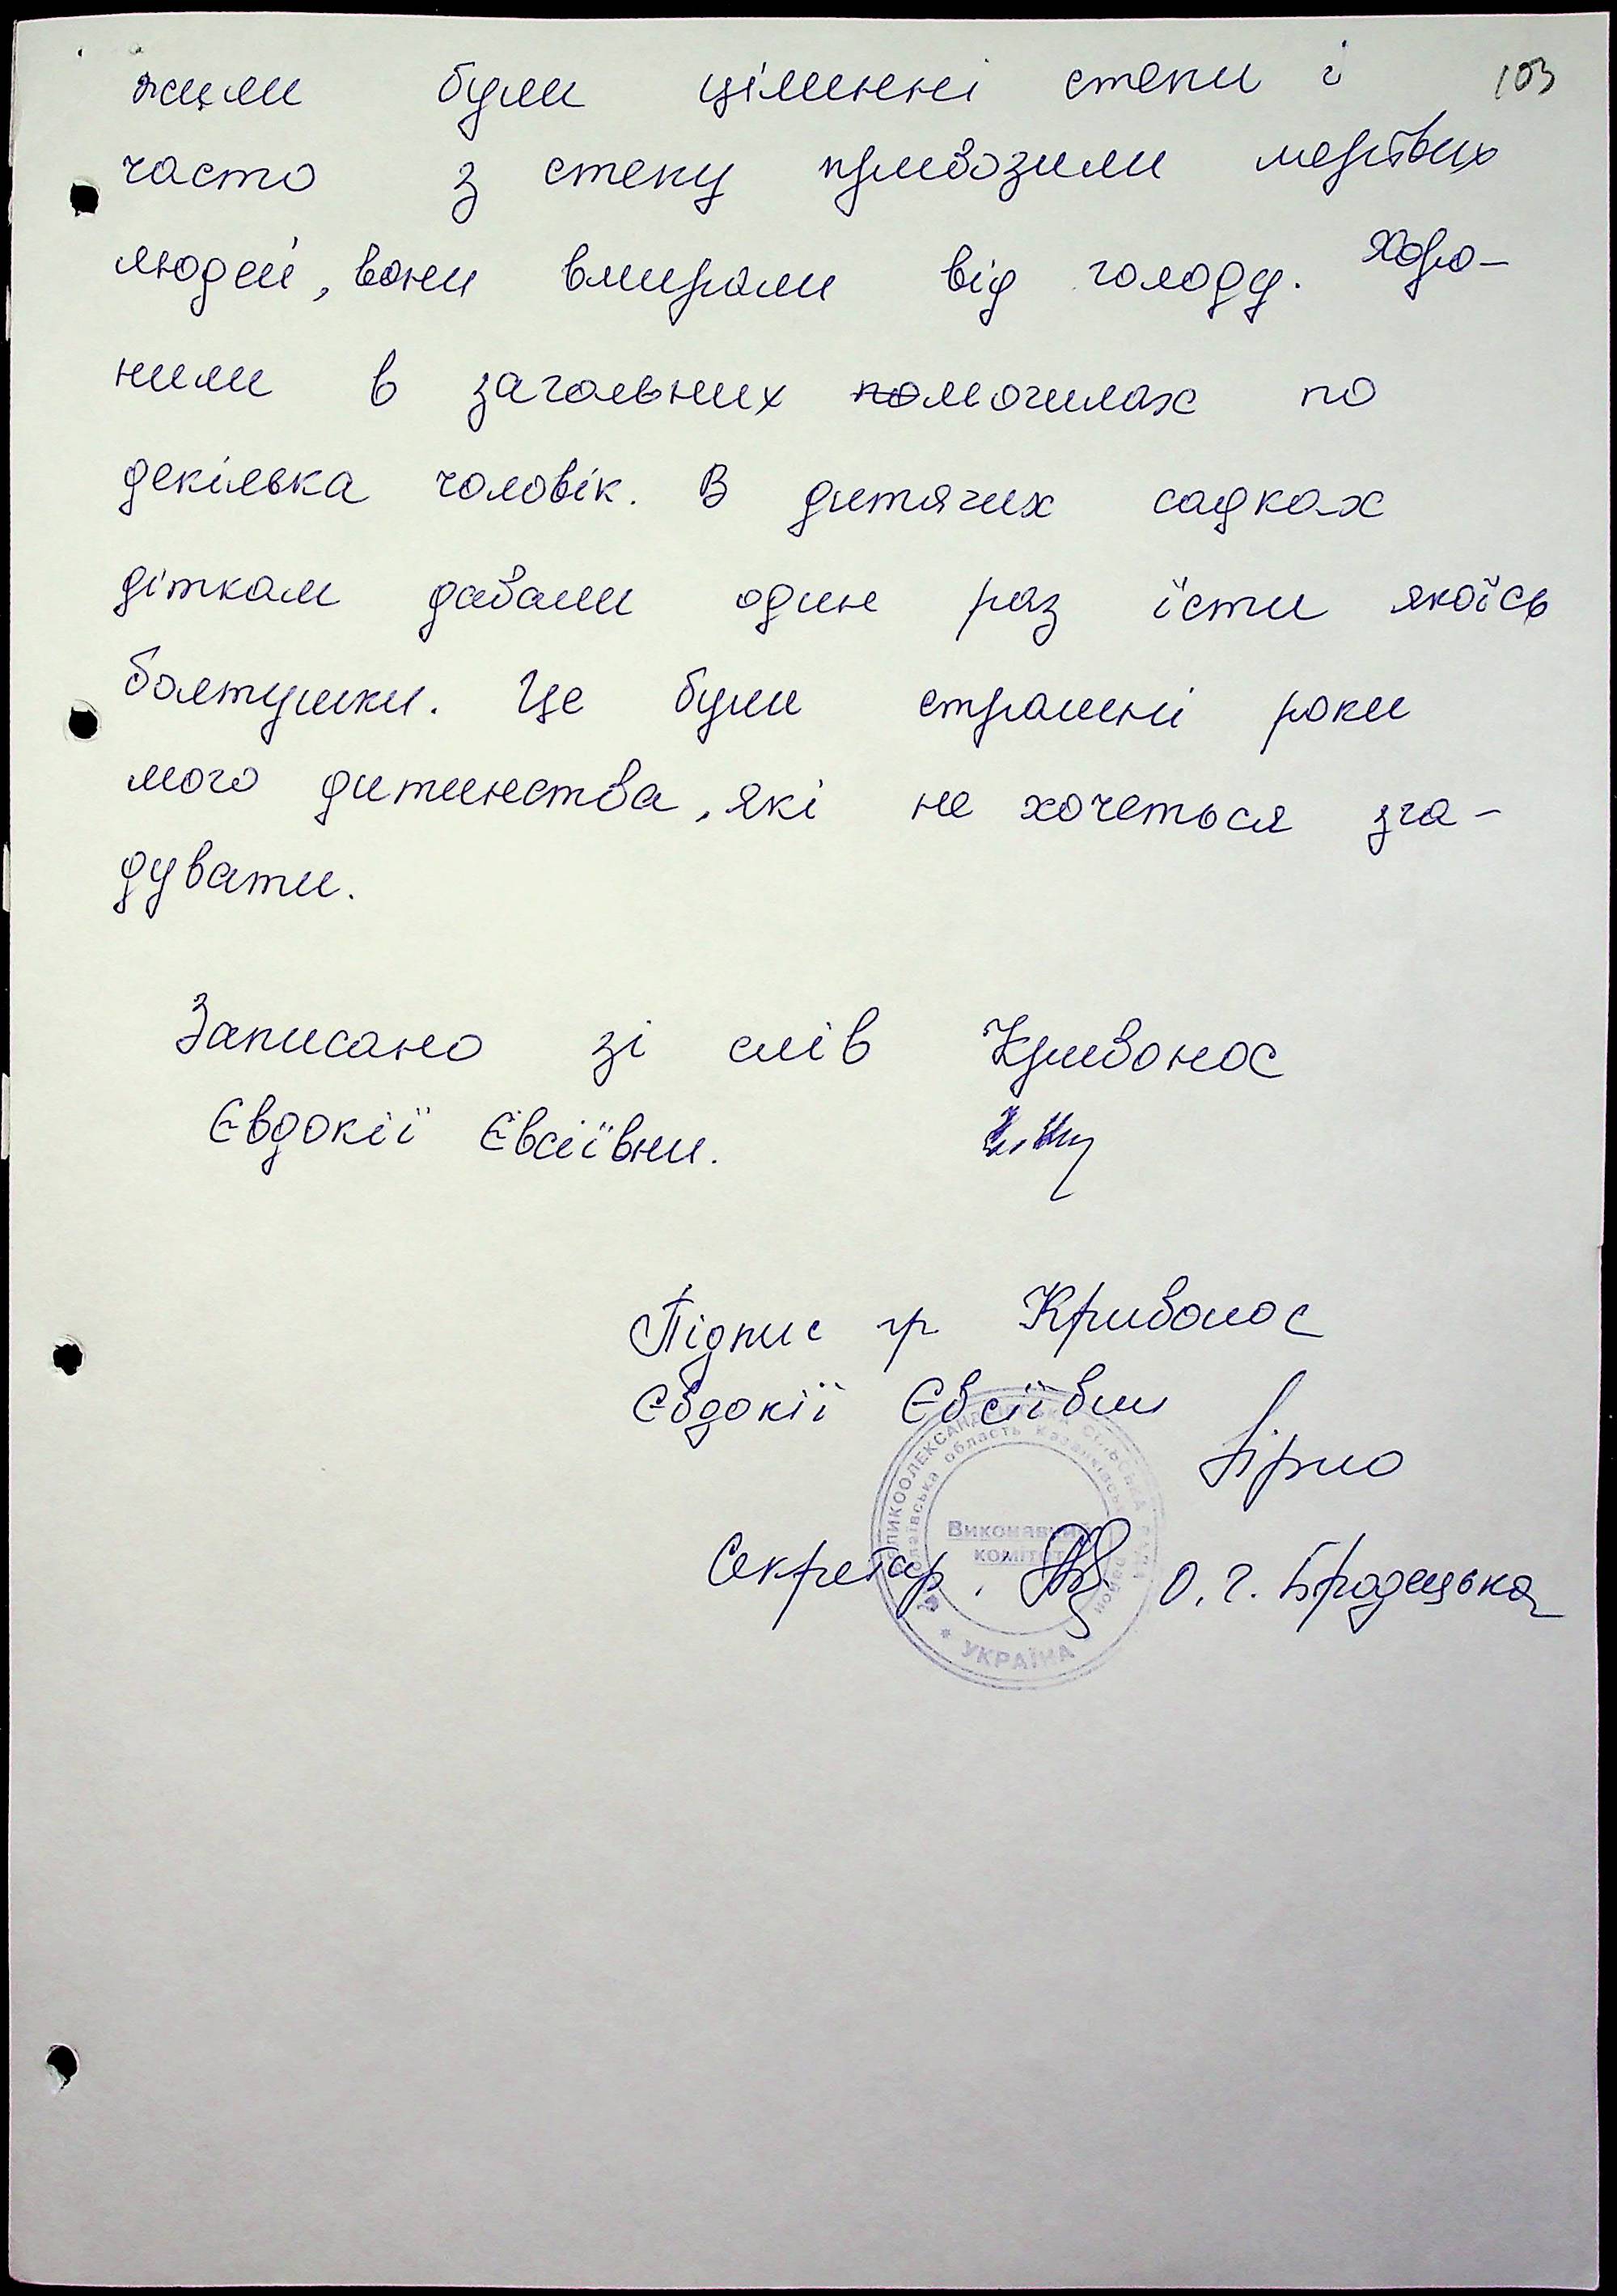 103
жили були цілинні степи і
часто з степу привозили мертвих
людей, вони вмирали від голоду. Хоро-
нили в загальних помогилах по
декілька чоловік. В дитячих садках
діткам давали один раз їсти якоїсь
болтушки. Це були страшні роки
мого дитинства, які не хочеться зга-
дувати.
Записано зі слів Кривонос
Євдокії Євсіївни.
Підпис гр. Кривонос
Євдокії Євсіївни
Вірно
Секретар О. Г. Бродецька
ВЕЛИКООЛЕКСАНДРІВСЬКА СІЛЬСЬКА РАДА
Миколаївська область Казанківський район
Виконавчий
комітет
* УКРАЇНА